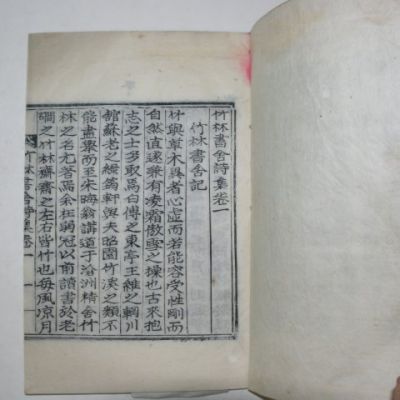 竹林書舍詩集卷一
竹林書舍記
竹與草木異者心虛而若能容受性剛而
自然直遂兼有凌霜傲雪之操也古來抱
志之士多取焉白傅之東亭王維之輞川
舘蘇老之綠筠軒與夫昭園竹溪之類不
能盡舉而至朱晦翁講道于滄洲精舍竹
林之名尤著焉余在弱冠以前讀書於老
磵之竹林齋齋之左右皆竹也每風凉月
竹林書舍詩集卷一 一